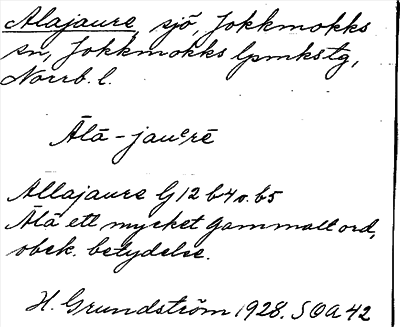 Alajaure, sjö, Jokkmokks
sn, Jokkmokks lpmkstg,
Norrb. l.
Ālā-jauᵉrē
Allajaure G12 b4 o. b5
Ālā ett mycket gammalt ord,
obek. betydelse.
H. Grundström 1928. SOA 42